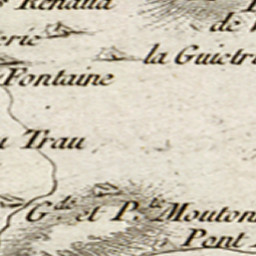 Renaud
de
erie
la Guietri
Fontaine
Trau
G.de et P.te Mouton
Pont